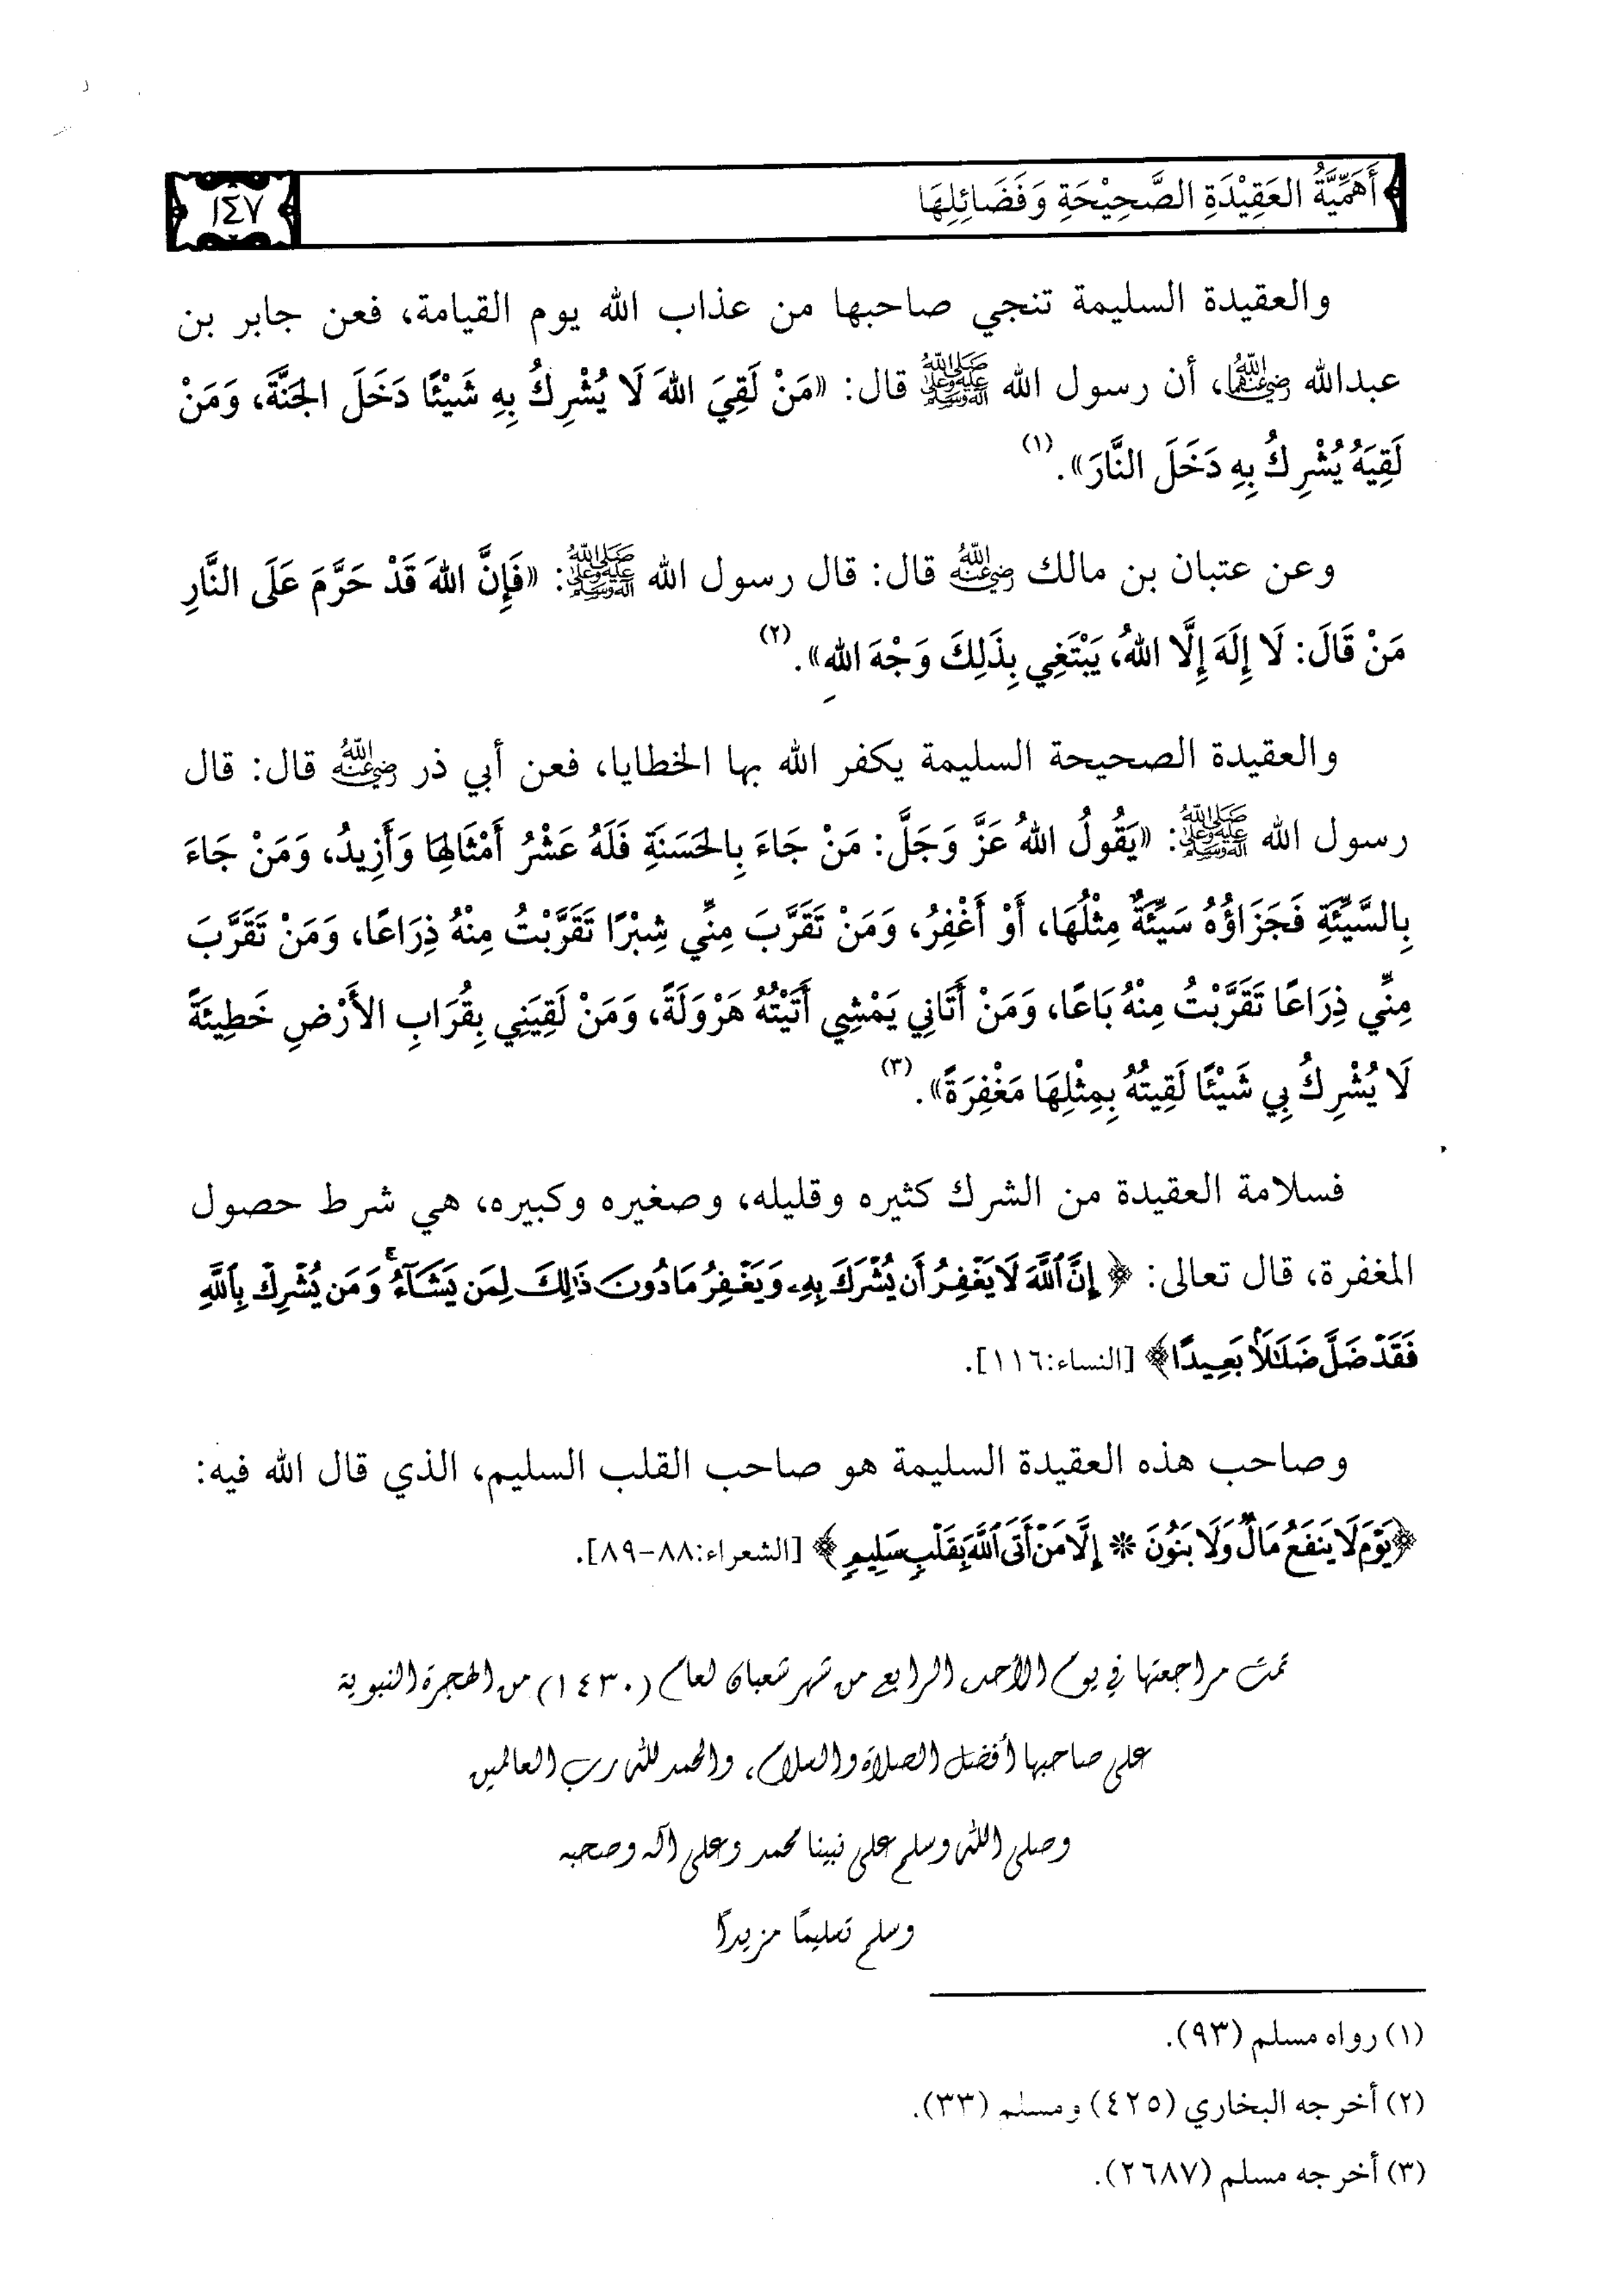 أَهَمِّيَّةُ العَقِيْدَةِ الصَّحِيْحَةِ وَفَضَائِلِهَا
١٤٧
والعقيدة السليمة تنجي صاحبها من عذاب الله يوم القيامة، فعن جابر بن
عبدالله رضي الله عنهما، أن رسول الله ﷺ قال: «مَنْ لَقِيَ اللهَ لَا يُشْرِكُ بِهِ شَيْئًا دَخَلَ الجَنَّةَ، وَمَنْ
لَقِيَهُ يُشْرِكُ بِهِ دَخَلَ النَّارَ».(١)
وعن عتبان بن مالك رضي الله عنه قال: قال رسول الله ﷺ: «فَإِنَّ اللهَ قَدْ حَرَّمَ عَلَى النَّارِ
مَنْ قَالَ: لَا إِلَهَ إِلَّا اللهُ، يَبْتَغِي بِذَلِكَ وَجْهَ اللهِ».(٢)
والعقيدة الصحيحة السليمة يكفر الله بها الخطايا، فعن أبي ذر رضي الله عنه قال: قال
رسول الله ﷺ: «يَقُولُ اللهُ عَزَّ وَجَلَّ: مَنْ جَاءَ بِالحَسَنَةِ فَلَهُ عَشْرُ أَمْثَالِهَا وَأَزِيدُ، وَمَنْ جَاءَ
بِالسَّيِّئَةِ فَجَزَاؤُهُ سَيِّئَةٌ مِثْلُهَا، أَوْ أَغْفِرُ، وَمَنْ تَقَرَّبَ مِنِّي شِبْرًا تَقَرَّبْتُ مِنْهُ ذِرَاعًا، وَمَنْ تَقَرَّبَ
مِنِّي ذِرَاعًا تَقَرَّبْتُ مِنْهُ بَاعًا، وَمَنْ أَتَانِي يَمْشِي أَتَيْتُهُ هَرْوَلَةً، وَمَنْ لَقِيَنِي بِقُرَابِ الأَرْضِ خَطِيئَةً
لَا يُشْرِكُ بِي شَيْئًا لَقِيتُهُ بِمِثْلِهَا مَغْفِرَةً».(٣)
فسلامة العقيدة من الشرك كثيره وقليله، وصغيره وكبيره، هي شرط حصول
المغفرة، قال تعالى: ﴿إِنَّ ٱللَّهَ لَا يَغْفِرُ أَن يُشْرَكَ بِهِۦ وَيَغْفِرُ مَا دُونَ ذَٰلِكَ لِمَن يَشَآءُ ۚ وَمَن يُشْرِكْ بِٱللَّهِ
فَقَدْ ضَلَّ ضَلَٰلًۢا بَعِيدًا﴾ [النساء:١١٦].
وصاحب هذه العقيدة السليمة هو صاحب القلب السليم، الذي قال الله فيه:
﴿يَوْمَ لَا يَنفَعُ مَالٌ وَلَا بَنُونَ * إِلَّا مَنْ أَتَى ٱللَّهَ بِقَلْبٍ سَلِيمٍ﴾ [الشعراء:٨٨-٨٩].
تمت مراجعتها في يوم الأحد الرابع من شهر شعبان لعام (١٤٣٠) من الهجرة النبوية
على صاحبها أفضل الصلاة والسلام، والحمد لله رب العالمين
وصلى الله وسلم على نبينا محمد وعلى آله وصحبه
وسلم تسليمًا مزيدًا
(١) رواه مسلم (٩٣).
(٢) أخرجه البخاري (٤٢٥) ومسلم (٣٣).
(٣) أخرجه مسلم (٢٦٨٧).